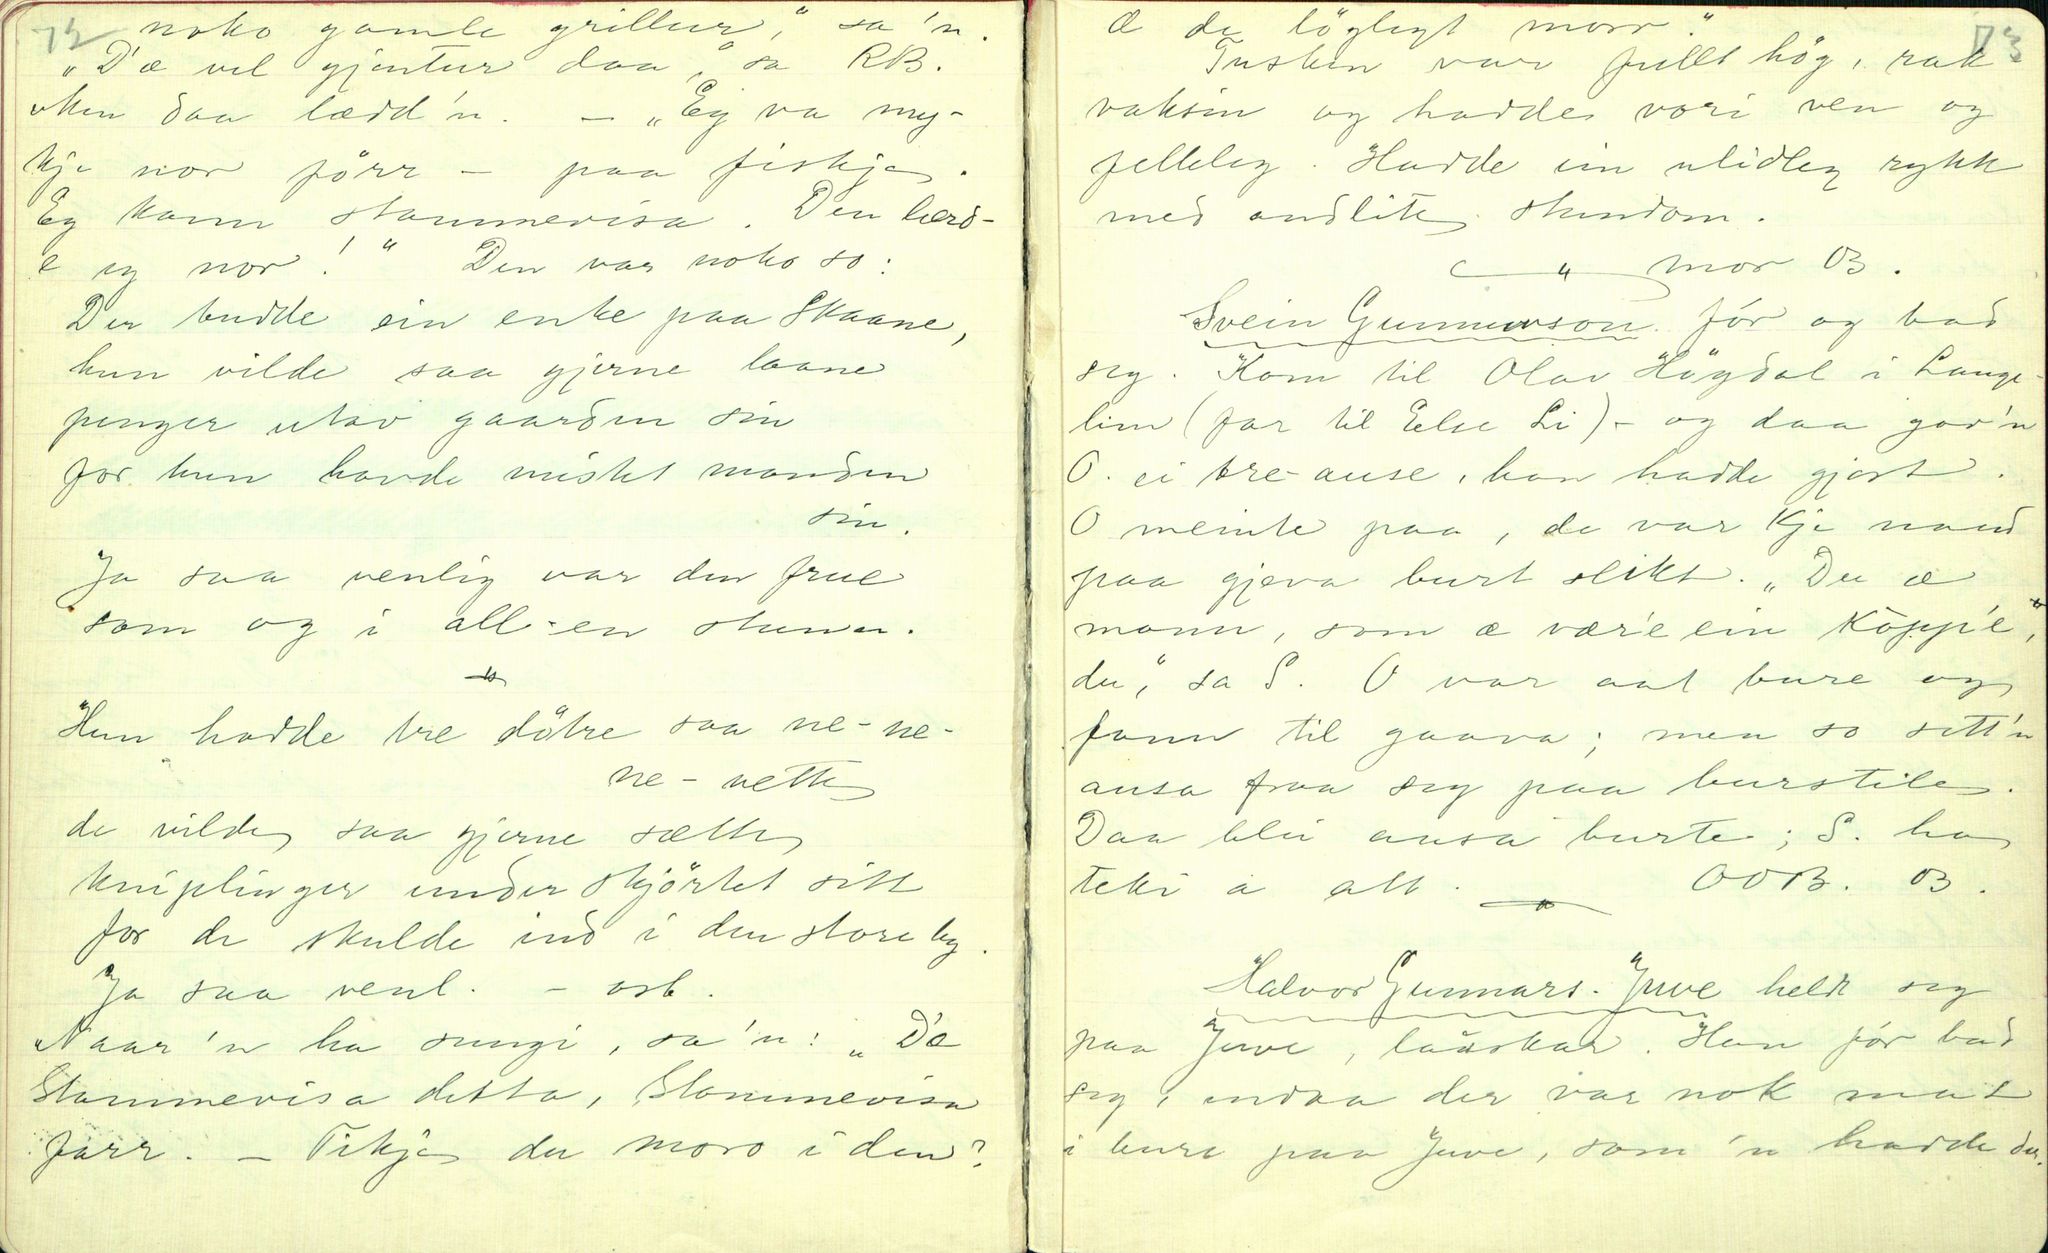 72
noko gamle grillur," sa 'n.
"D'æ vel gjentur daa," sa RB.
uken daa lædd'n. — "Eg va my-
kje nor förr — paa fiskje.
Eg kann stammevisa. Den lærd-
e eg nor!" Den var noko so:
Der budde ein enke paa Skaane,
hun vilde saa gjerne laane
penger utav gaarden sin
for hun havde mistet manden
sin.
Ja saa venlig var den frue
som og i all-en stuua.
Hun hadde tre døtre saa ne-ne-
ne-nette
de vilde saa gjerne sætte
kniplinger under skjörtet sitt
for de skulde ind i den store by.
Ja saa venl. — osb.
Naar 'n ha sungi, sa 'n: "D'æ
Stammevisa detta, Stammevisa
farr. — Tikje du moro i den?
73
Æ de löglegt morr."
Tusken var fullt hög, rak-
vaksin og hadde vori ven og
felleleg. Hadde ein ulidleg rykk
med andlite stundom.
mor OB.
Svein Gunnurson fór og bad
seg. Kom til Olav Högdal i Lange-
lim (far til Else Li) — og daa gav'n
O. ei tre-ause, han hadde gjort.
O meinte paa, de var kje naud
paa gjeva burt slikt. "Du æ
mann, som æ vær'e ein Köpp'e,
du," sa S. O var aat bure og
fann til gaava; men so sett'n
ausa fraa seg paa burstile.
Daa blei ausa burte; S. ha
teki a att. OOB. OB.
Halvor Gunnars. Juve heldt seg
paa Juve, lausskar. Han fór bad
seg, endaa der var nok mat
i bure paa Juve, som 'n hadde der.